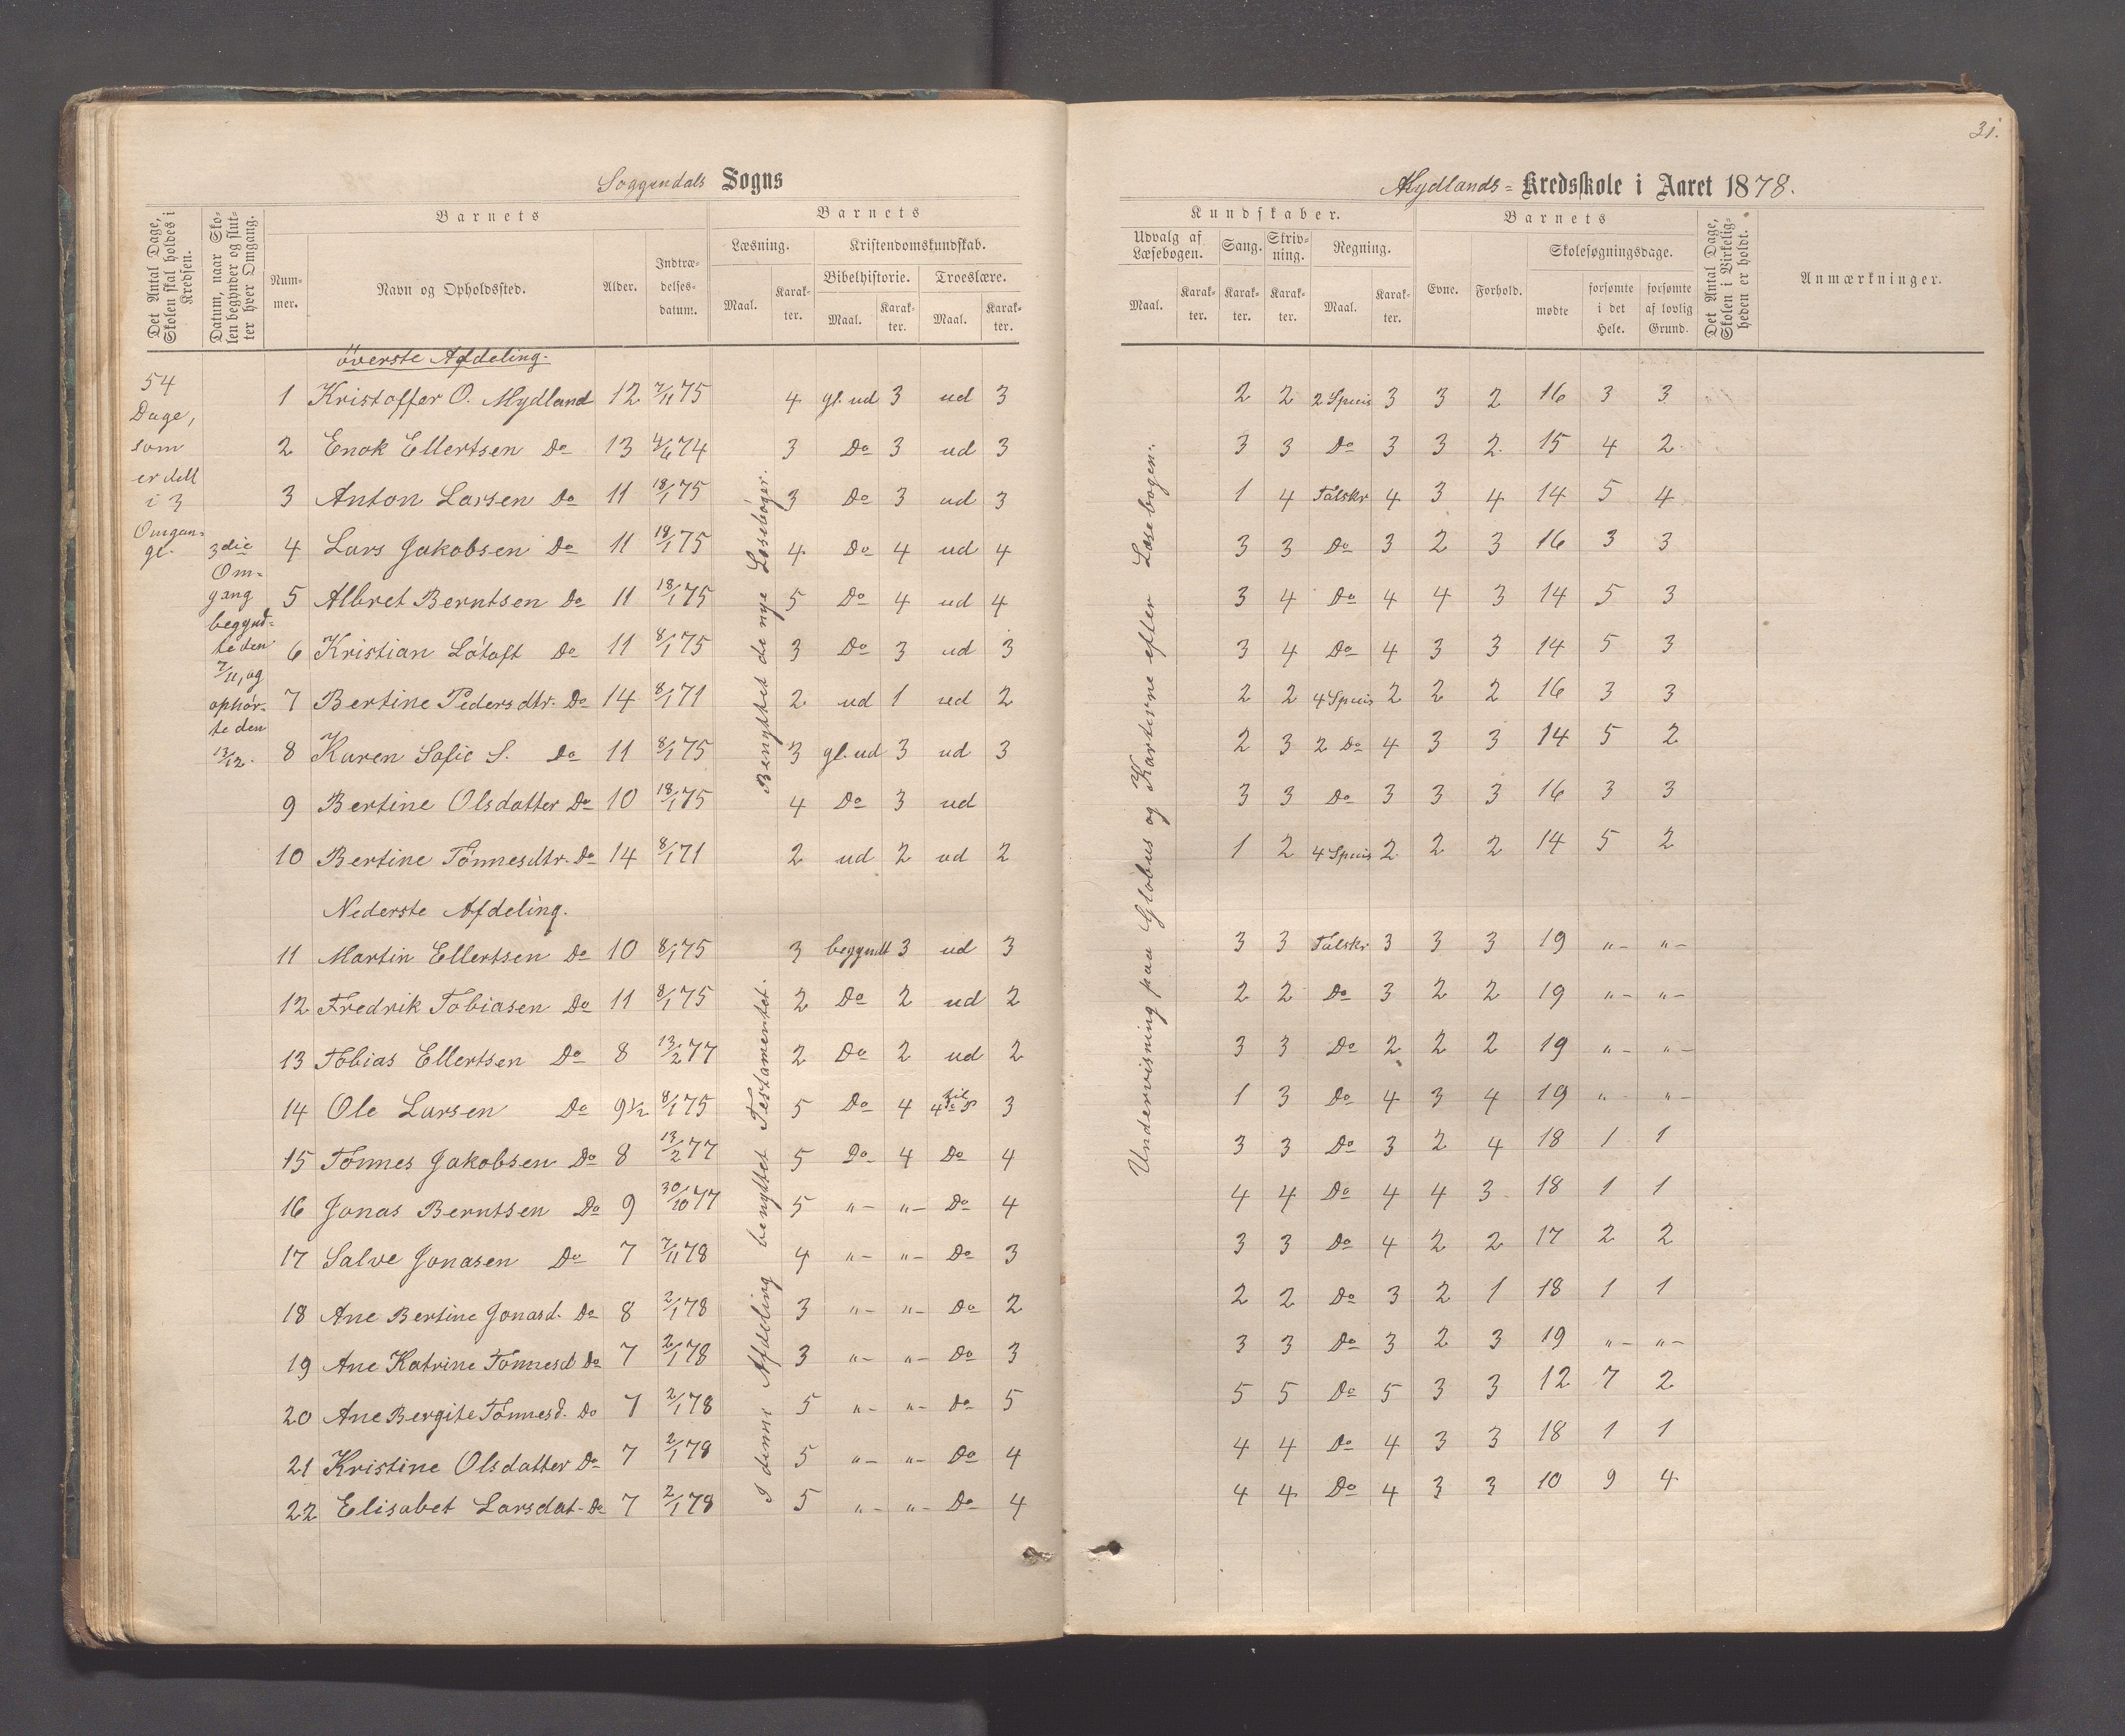 31.
Soggendals Sogns
Mydlands= Kredsskole i Aaret 1878.
Det Antal Dage, Skolen skal holdes i Kredsen.
Datum, naar Skolen begynder og slutter hver Omgang.
Barnets
Nummer.
Navn og Opholdssted.
Alder.
Indtrædelsesdatum.
Barnets
Læsning.
Maal.
Karakter.
Kristendomskundskab.
Bibelhistorie.
Maal.
Karakter.
Troeslære.
Maal.
Karakter.
Kundskaber.
Udvalg af Læsebogen.
Maal.
Karakter.
Sang.
Karakter.
Skrivning.
Karakter.
Regning.
Maal.
Karakter.
Barnets
Evne.
Forhold.
Skolesøgningsdage.
mødte
forsømte i det Hele.
forsømte af lovlig Grund.
Det Antal Dage, Skolen i Virkeligheden er holdt.
Anmærkninger.
54
Dage,
som
er delt
i 3
Omgan-
ge.
3die
Om-
gang
begynd-
te den
7/11, og
ophør-
te den
13/12.
Benyttet de nye Læsebøger.
I denne Afdeling benyttet Testamentet.
Undervisning paa Globus og Karterne efter Læsebogen.
øverste Afdeling.
1 Kristoffer O. Mydland 12 7/11 75 4 gl. ud 3 ud 3 2 2 2 Specis 3 3 2 16 3 3
2 Enok Ellertsen Do 13 4/6 74 3 Do 3 ud 3 3 3 Do 3 3 2 15 4 2
3 Anton Larsen Do 11 18/1 75 3 Do 3 ud 3 1 4 Talskr 4 3 4 14 5 4
4 Lars Jakobsen Do 11 18/1 75 4 Do 4 ud 4 3 3 Do 3 2 3 16 3 3
5 Albret Berntsen Do 11 18/1 75 5 Do 4 ud 4 3 4 Do 4 4 3 14 5 3
6 Kristian Løtoft Do 11 8/1 75 3 Do 3 ud 3 3 4 Do 4 3 3 14 5 3
7 Bertine Pedersdtr. Do 14 8/1 71 2 ud 1 ud 2 2 2 4 Specis 2 2 2 16 3 3
8 Karen Sofie S. Do 11 8/1 75 3 gl. ud 3 ud 3 2 3 2 Do 4 3 3 14 5 2
9 Bertine Olsdatter Do 10 18/1 75 4 Do 3 ud 3 3 Do 3 3 3 16 3 3
10 Bertine Tønnesdtr. Do 14 8/1 71 2 ud 2 ud 2 1 2 4 Specis 2 2 2 14 5 2
Nederste Afdeling.
11 Martin Ellertsen Do 10 8/1 75 3 begyndt 3 ud 3 3 3 Talskr 3 3 3 19 "- "-
12 Fredrik Tobiasen Do 11 8/1 75 2 Do 2 ud 2 2 2 Do 3 2 2 19 "- "-
13 Tobias Ellertsen Do 8 13/2 77 2 Do 2 ud 2 3 3 Do 2 2 2 19 "- "-
14 Ole Larsen Do 9 1/2 8/1 75 5 Do 4 3 1 3 Do 4 3 4 19 "- "-
15 Tønnes Jakobsen Do 8 13/2 77 5 Do 4 Do 4 3 3 Do 3 2 4 18 1 1
16 Jonas Berntsen Do 9 30/10 77 5 "- "- Do 4 4 4 Do 4 4 3 18 1 1
17 Salve Jonasen Do 7 7/11 78 4 "- "- Do 3 3 3 Do 4 2 2 17 2 2
18 Ane Bertine Jonasd. Do 8 2/1 78 3 "- "- Do 2 2 2 Do 3 2 1 18 1 1
19 Ane Katrine Tønnesd Do 7 2/1 78 3 "- "- Do 3 3 3 Do 3 2 3 19 "- "-
20 Ane Bergite Tønnesd. Do 7 2/1 78 5 "- "- Do 5 5 5 Do 5 3 3 12 7 2
21 Kristine Olsdatter Do 7 2/1 78 5 "- "- Do 4 4 4 Do 4 3 3 18 1 1
22 Elisabet Larsdat- Do 7 2/1 78 5 "- "- Do 4 4 4 Do 4 3 3 10 9 4